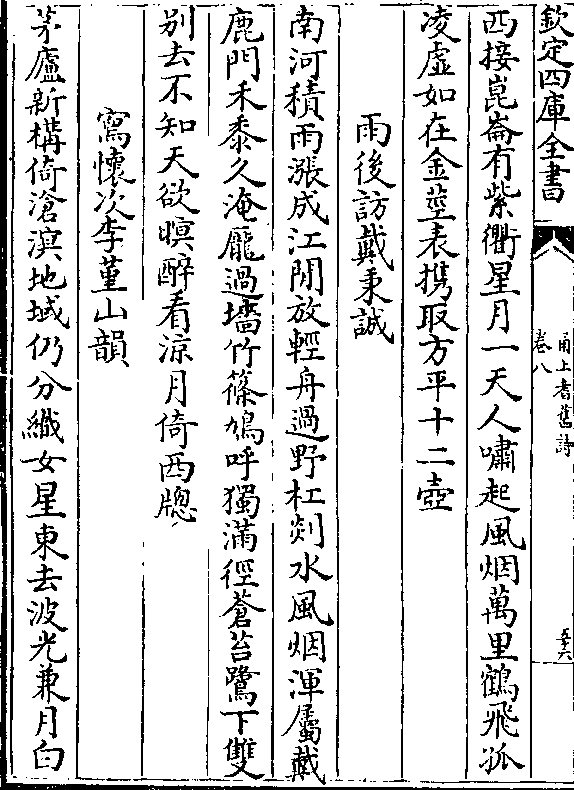 欽定四庫全書
甬上耆舊詩
卷八
五六
西接崑崙有紫衢星月一天人嘯起風烟萬里鶴飛孤
凌虚如在金莖表携取方平十二壺
雨後訪戴秉誠
南河積雨漲成江閒放輕舟過野杠剡水風烟渾屬戴
鹿門禾黍久淹龎過墻竹篠鳩呼獨滿徑蒼苔鷺下雙
别去不知天欲暝醉看涼月倚西牕
寫懷次李菫山韻
茅廬新構倚滄溟地域仍分織女星東去波光兼月白